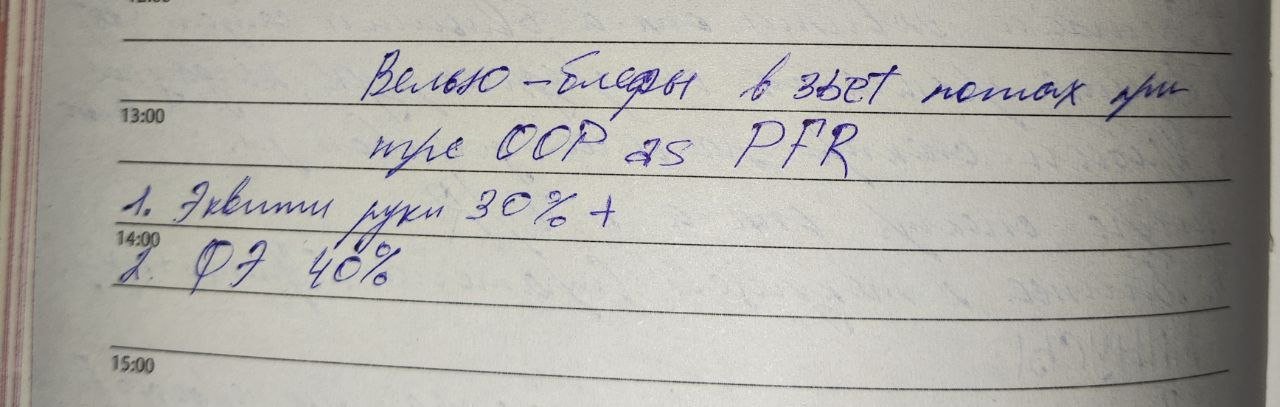 Велью-блефы в 3bet потах при
13:00
игре OOP as PFR
1. Эквити руки 30% +
14:00
2. ФЭ 40%
15:00